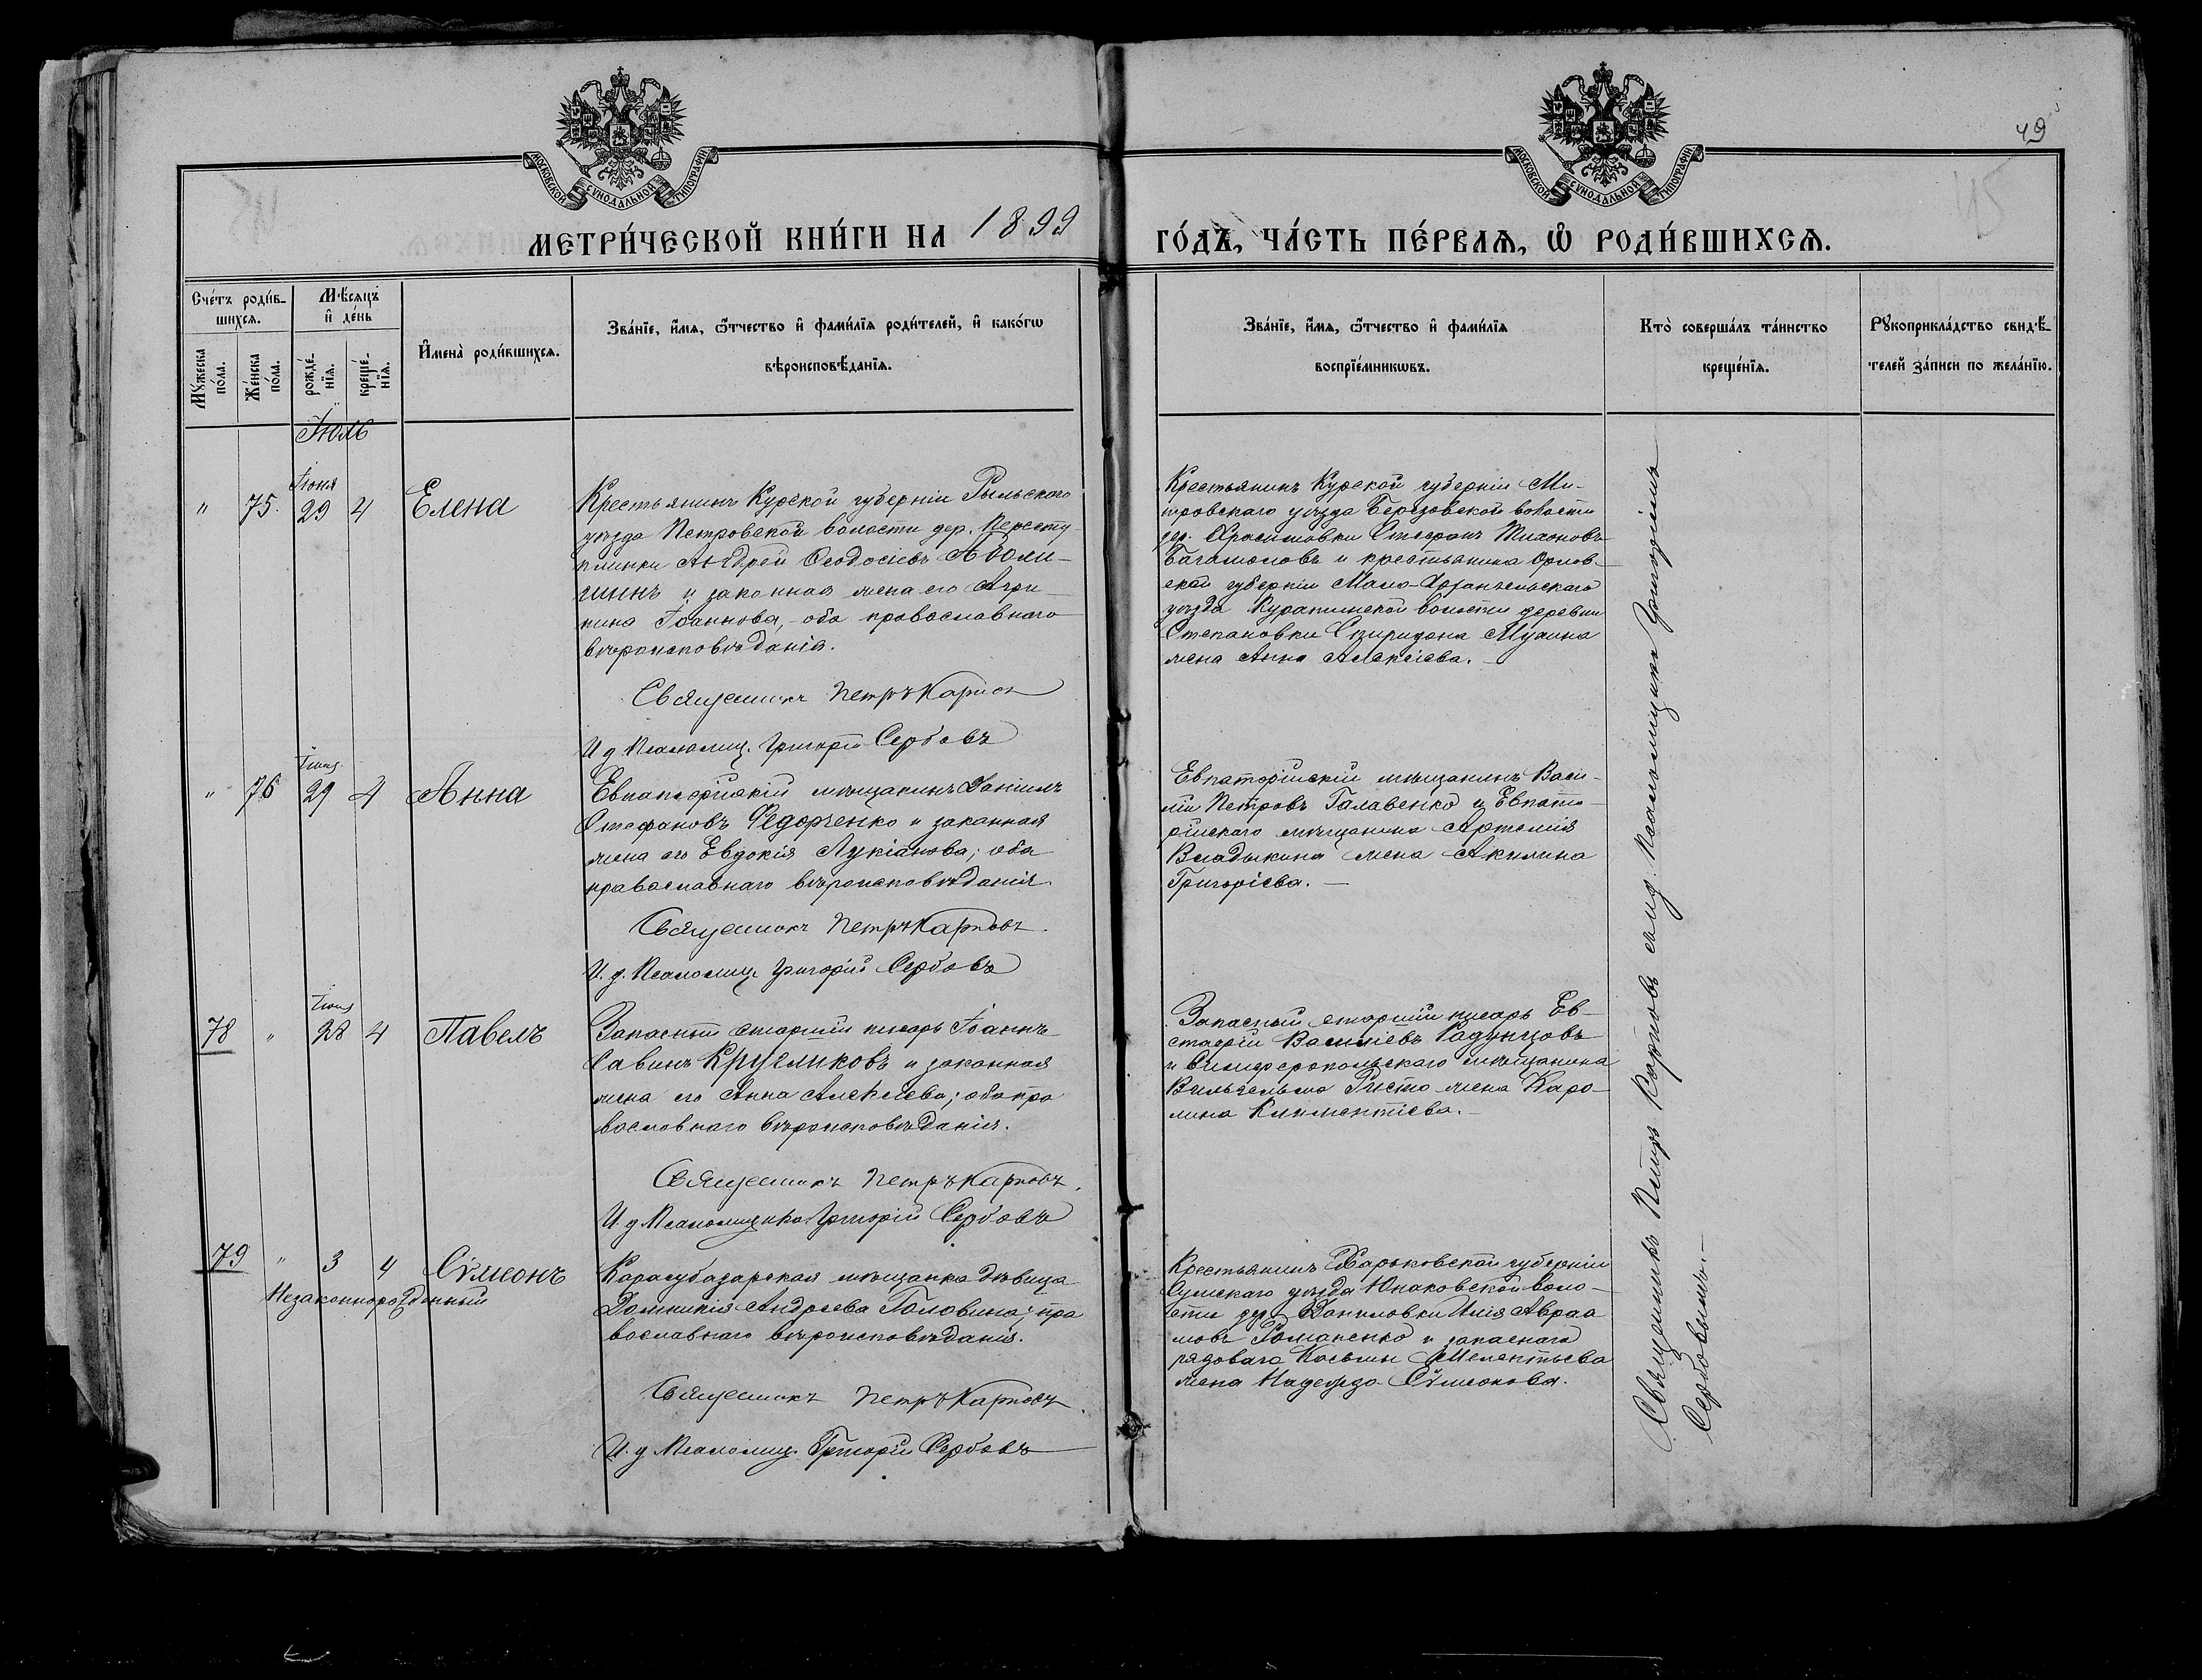 49
МОСКОВСКОЙ СѴНОДАЛЬНОЙ ТИПОГРАФІИ
МОСКОВСКОЙ СѴНОДАЛЬНОЙ ТИПОГРАФІИ
45
МЕТРИ́ЧЕСКОЙ КНИ́ГИ НА 1899
ГО́ДЪ, ЧА́СТЬ ПЕ́РВАѦ, Ѽ РОДИ́ВШИХСѦ.
Сче́тъ роди́в-
шихсѧ.
Мѣ́сѧцъ
и҆ де́нь
Мꙋ́жеска
по́ла.
Же́нска
по́ла.
рожде́-
нїѧ.
креще́-
нїѧ.
И҆мена̀ роди́вшихсѧ.
Зва́нїе, и҆́мѧ, ѻ҆́тчество и҆ фами́лїѧ роди́телей, и҆ како́гѡ
вѣроисповѣ́данїѧ.
Зва́нїе, и҆́мѧ, ѻ҆́тчество и҆ фами́лїѧ
воспрїе́мникѡвъ.
Кто̀ соверша́лъ та́инство
креще́нїѧ.
Рꙋкоприкла́дство свидѣ́-
телей за́писи по жела́нїю.
Іюль
" 75. Іюня 29 4 Елена
Крестьянинъ Курской губерніи Рыльскаго
уѣзда Петровской волости дер. Пересту-
плинки Андрей Ѳеодосіевъ
и законная жена его Агри-
пина Іоаннова, - оба православнаго
вѣроисповѣданія.
Священникъ Петръ Карпов
И д Псаломщ. Григорій Сербовъ
Крестьянинъ Курской губерніи
уѣзда Березовской волости
дер. Стефанъ Тихоновъ
и крестьянина Орлов-
ской губерніи Мало-Архангельскаго
уѣзда волости деревни
Степановки Спиридона Мухина
жена Анна Алексіева. -
" 76 Іюня 29 4 Анна
Евпаторійскій мѣщанинъ Даніилъ
Стефановъ Ѳедорченко и законная
жена его Евдокія Лукіанова; оба
православнаго вѣроисповѣданія.
Священникъ Петръ Карповъ.
И. д. Псаломщ. Григорій Сербовъ
Евпаторійскій мѣщанинъ Васи-
лій Петровъ Галавенко и Евпато-
рійскаго мѣщанина Артемія
Владыкина жена Акилина
Григоріева. -
78 " Іюня 28 4 Павелъ
Запасный старшій писарь Іоаннъ
Савинъ Кругликовъ и законная
жена его Анна Алексіева; оба пра
вославнаго вѣроисповѣданія.
Священникъ Петръ Карповъ.
И. д Псаломщика Григорій Сербовъ
Запасный старшій писарь Ев-
стафій Василіевъ Радунцовъ
и Симферопольскаго мѣщанина
Вильгельма Ристо жена Каро-
лина Климентіева. -
79 " 3 4 Сѵмеонъ
Незаконнорожденный
Карасубазарская мѣщанка дѣвица
Домникія Андреева Головина; пра
вославнаго вѣроисповѣданія.
Священникъ Петръ Карповъ.
И. д Псаломщ. Григорій Сербовъ
Крестьянинъ Харьковской губерніи
Сумскаго уѣзда Юнаковской воло-
сти дер. Илія Авраа
мовъ Романенко и запаснаго
рядоваго Косьмы Мелентьева
жена Надежда Сѵмеонова.
Священникъ Петръ Карповъ съ и.д. псаломщика Григоріемъ
Сербовымъ. -